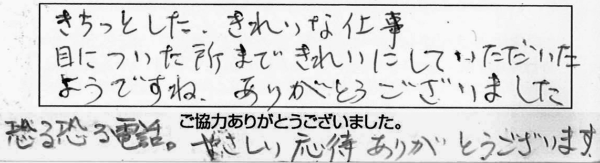 きちっとした、きれいな仕事
目についた所まできれいにしていただいた
ようですね、ありがとうございました
ご協力ありがとうございました。
恐る恐る電話。やさしい応待ありがとうございます